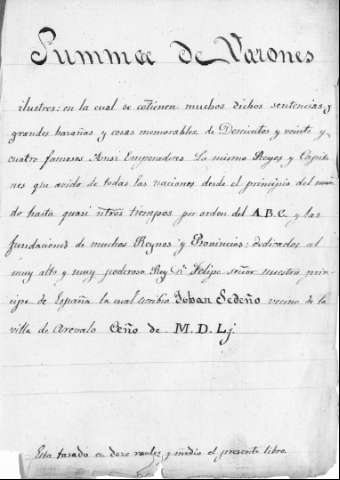 Summa de Varones
ilustres: en la cual se cōtienen muchos dichos sentencias, y
grandes hazañas y cosas memorables de Doscientos y veinte y
cuatro famosos. Ansi Emperadores Lo mismo Reyes y Capita
nes que avido de todas las naciones desde el principio del mun
do hasta quasi nr̄os tiempos por orden del A.B.C. y las
fundaciones de muchos Reynos y Provincias: dedicados al
muy alto y muy poderoso Rey Dⁿ Felipe señor nuestro prin
cipe de España la cual scribio Johan Sedeño vecino de la
villa de Arevalo Año de M.D.Lj.
Esta tasado en doze reales y medio el presente libro.